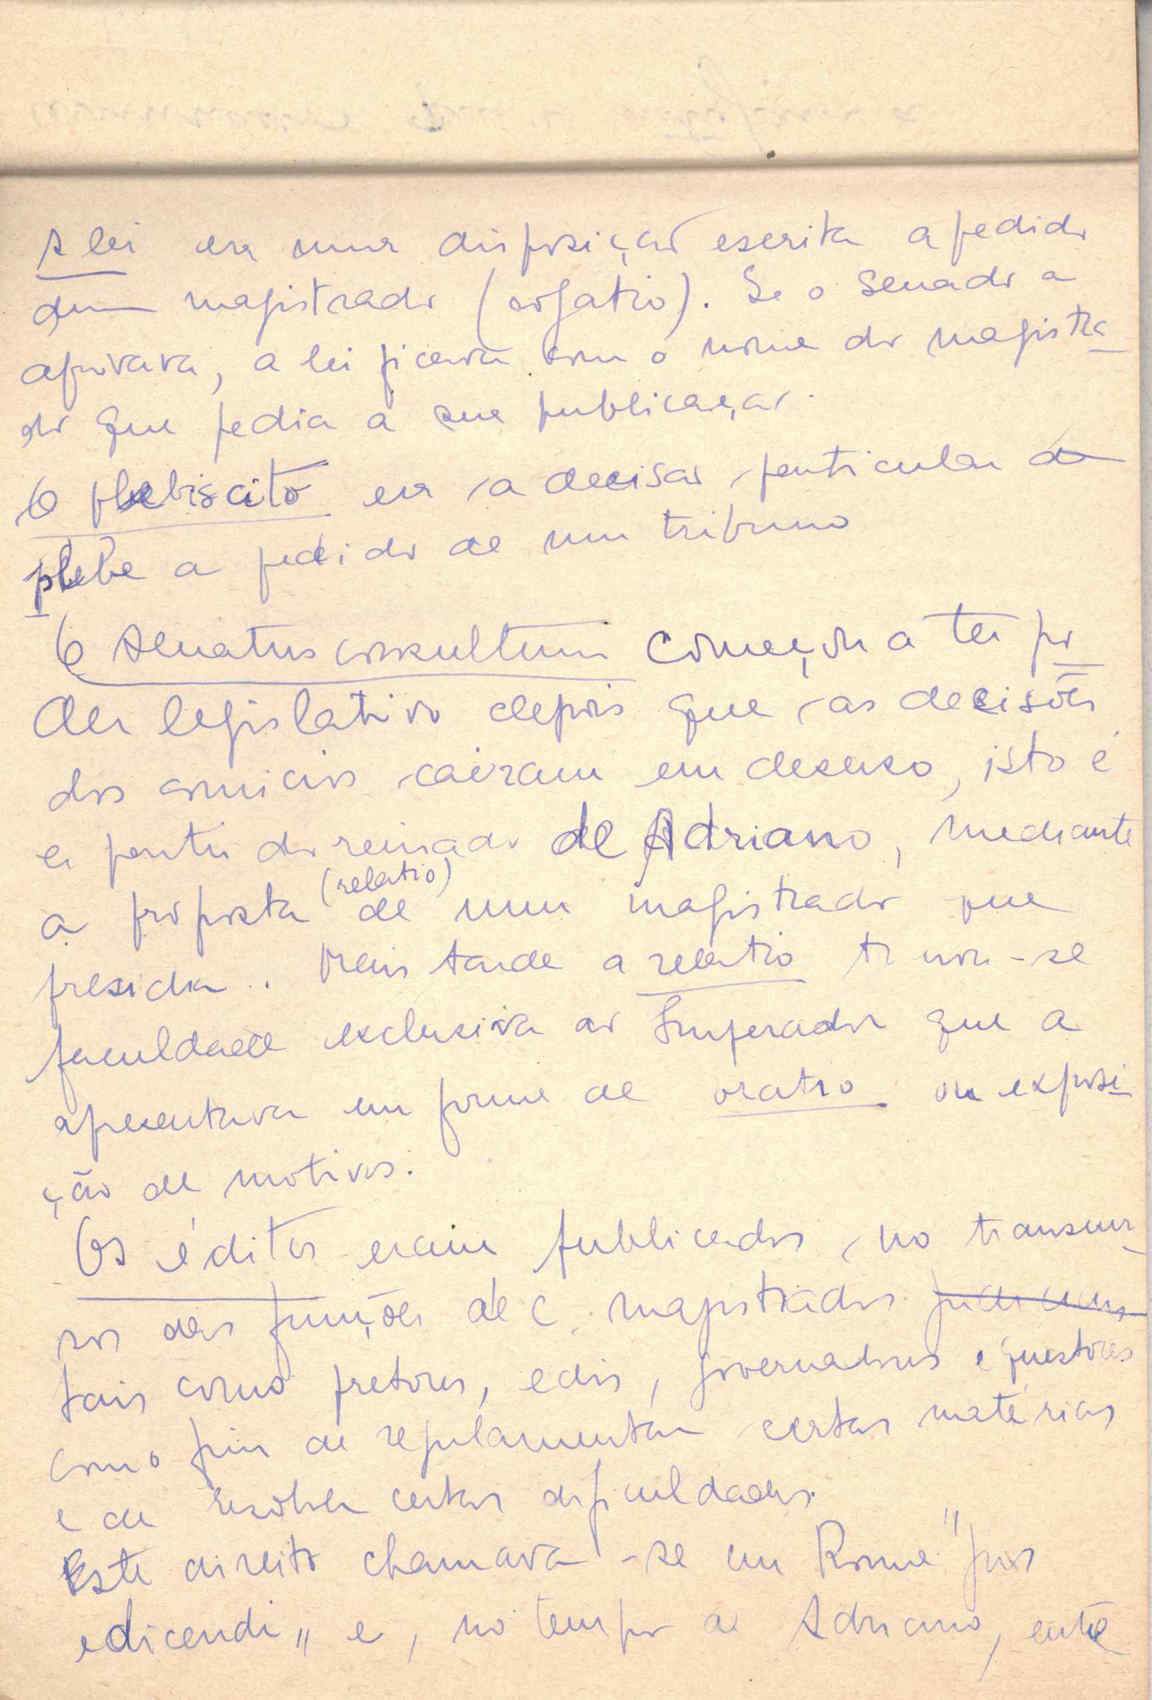 A lei era uma disposição escrita a pedido
dum magistrado (rogatio). Se o Senado a
aprovava, a lei ficava com o nome do magistra-
do que pedia a sua publicação.
O plebiscito era a decisão particular da
plebe a pedido de um tribuno
O senatus consultum começou a ter po-
der legislativo depois que as decisões
dos comícios caíram em desuso, isto é
a partir do reinado de Adriano, mediante
a proposta (relatio) de um magistrado que
presidia. Mais tarde a relatio tornou-se
faculdade exclusiva do Imperador que a
apresentava em forma de oratio ou exposi-
ção de motivos.
Os éditos eram publicados, no transcur-
sos das funções de magistrados
tais como pretores, edis, governadores e questores
com o fim de regulamentar certas matérias
e de resolver certas dificuldades.
Este direito chamava-se em Roma "jus
edicendi" e, no tempo de Adriano, este